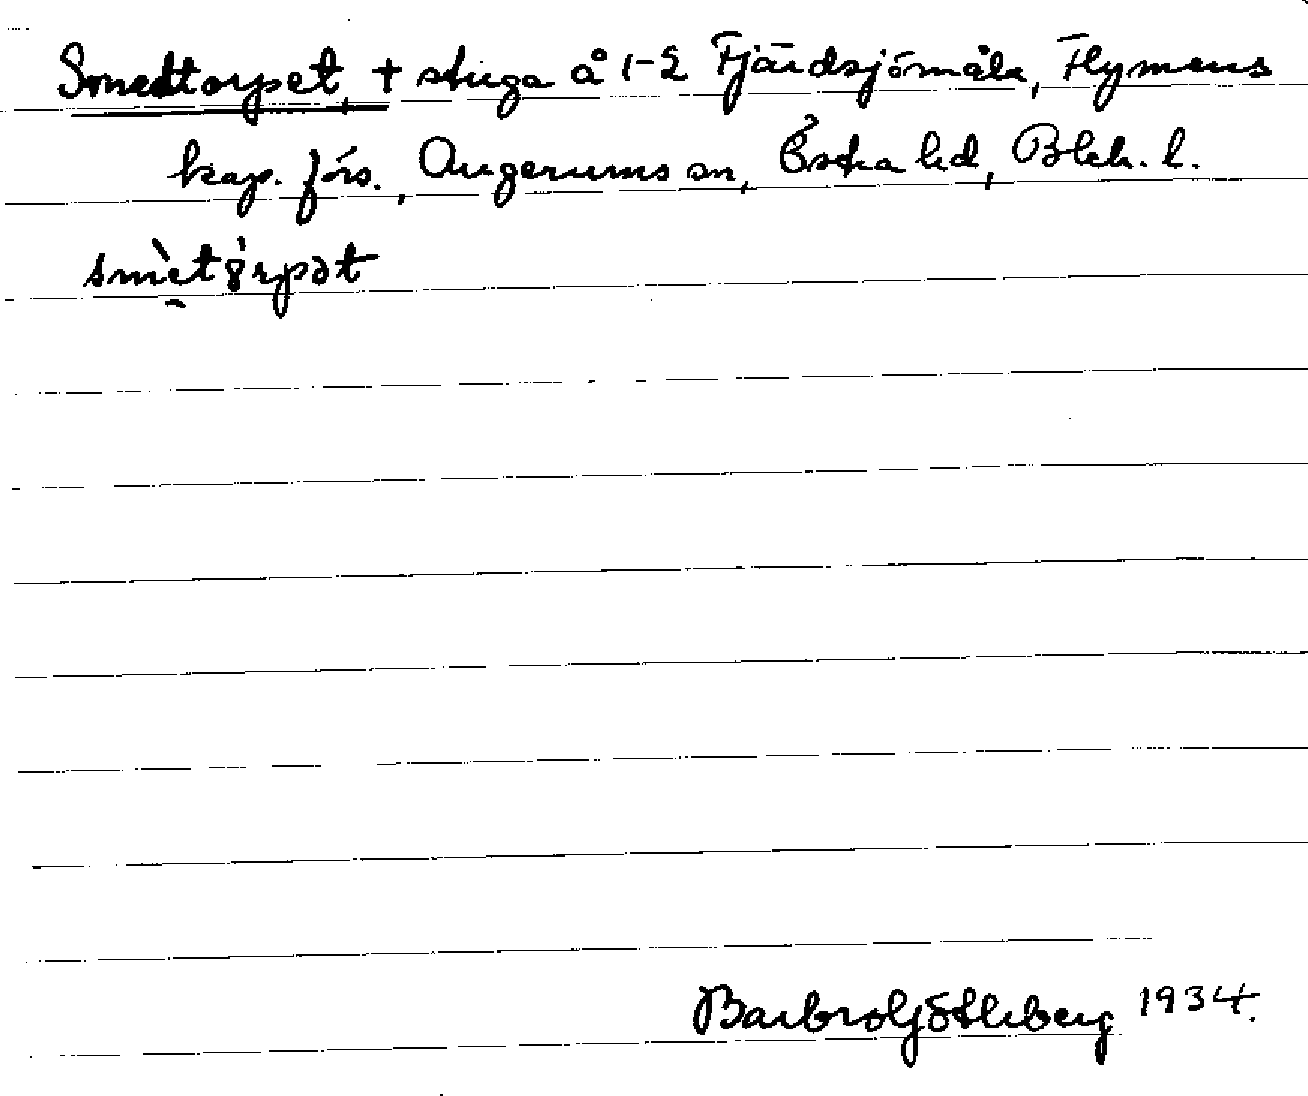 Smedtorpet, + stuga å 1-2 Fjärdsjömåla, Flymens
kap. förs., Augerums sn, Östra hd, Blek. l.
smètȯ́rpət
Barbro Götleberg 1934.